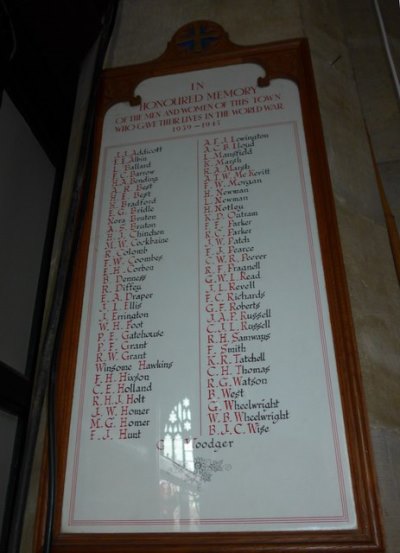 IN
HONOURED MEMORY
OF THE MEN AND WOMEN OF THIS TOWN
WHO GAVE THEIR LIVES IN THE WORLD WAR
1939 - 1945
Addicott
Albin
L. Ballard
F. C. Barrow
H. A. Bending
A. R. Best
H. E. Best
H. Bradford
E. G. Bridle
Nora Bruton
A. S. Bruton
H. J. Chinchen
M. W. Cockbaine
R. Colomb
F. W. Coombes
E. H. Corben
B. Denness
R. Diffey
E. A. Draper
J. L. Ellis
J. Errington
W. H. Foot
P. E. Gatehouse
P. F. Grant
R. W. Grant
Winsome Hawkins
F. H. Hixson
C. E. Holland
R. H. J. Holt
J. W. Homer
M. G. Homer
F. J. Hunt
A. E. J. Lewington
A. C. B. Lloyd
L. Mansfield
K. Marsh
R. A. Marsh
A. T. W. McKevitt
F. W. Morgan
H. Newman
L. Newman
H. Notley
K. D. Outram
F. E. Parker
R. C. Parker
J. W. Patch
E. J. Pearce
C. W. R. Peever
R. F. Pragnell
G. W. L. Read
J. L. Revell
F. C. Richards
G. F. Roberts
J. A. P. Russell
C. J. L. Russell
R. H. Samways
F. Smith
K. R. Tatchell
C. H. Thomas
R. G. Watson
B. West
G. Wheelwright
W. B. Wheelwright
B. J. C. Wise
Woodger